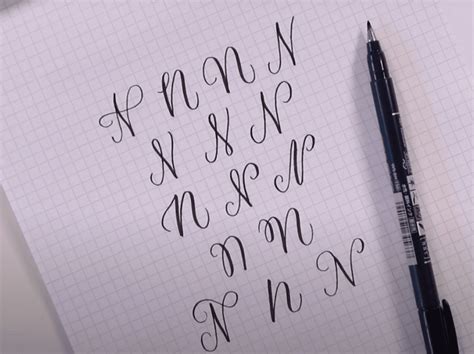 N n N N
N N N
n N N
n n
N n N